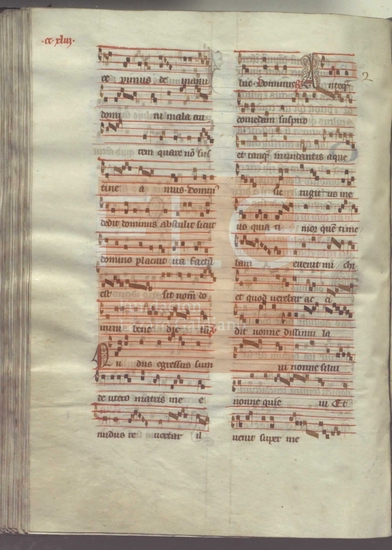 ·cc·xliij·
ce pimus de manu
domi ni mala au
tem quare nõ sus
tine a mus dominꝰ
dedit dominus abstulit sicut
domino placuit ita factũ
est sit nom̃ do
mini bene dic
Nu dus egressus sum
de utero matris me e
nudus re uertar il
luc dominus Anteq̃
comedam suspiro
et tanq̃ inundantes aque
sic rugit us me
us quia ti mor quẽ time
bam euenit mi chi
et quod uerebar ac ci
dit nonne dissimu la
ui nonne silui
nonne quie ui Et
uenit super me